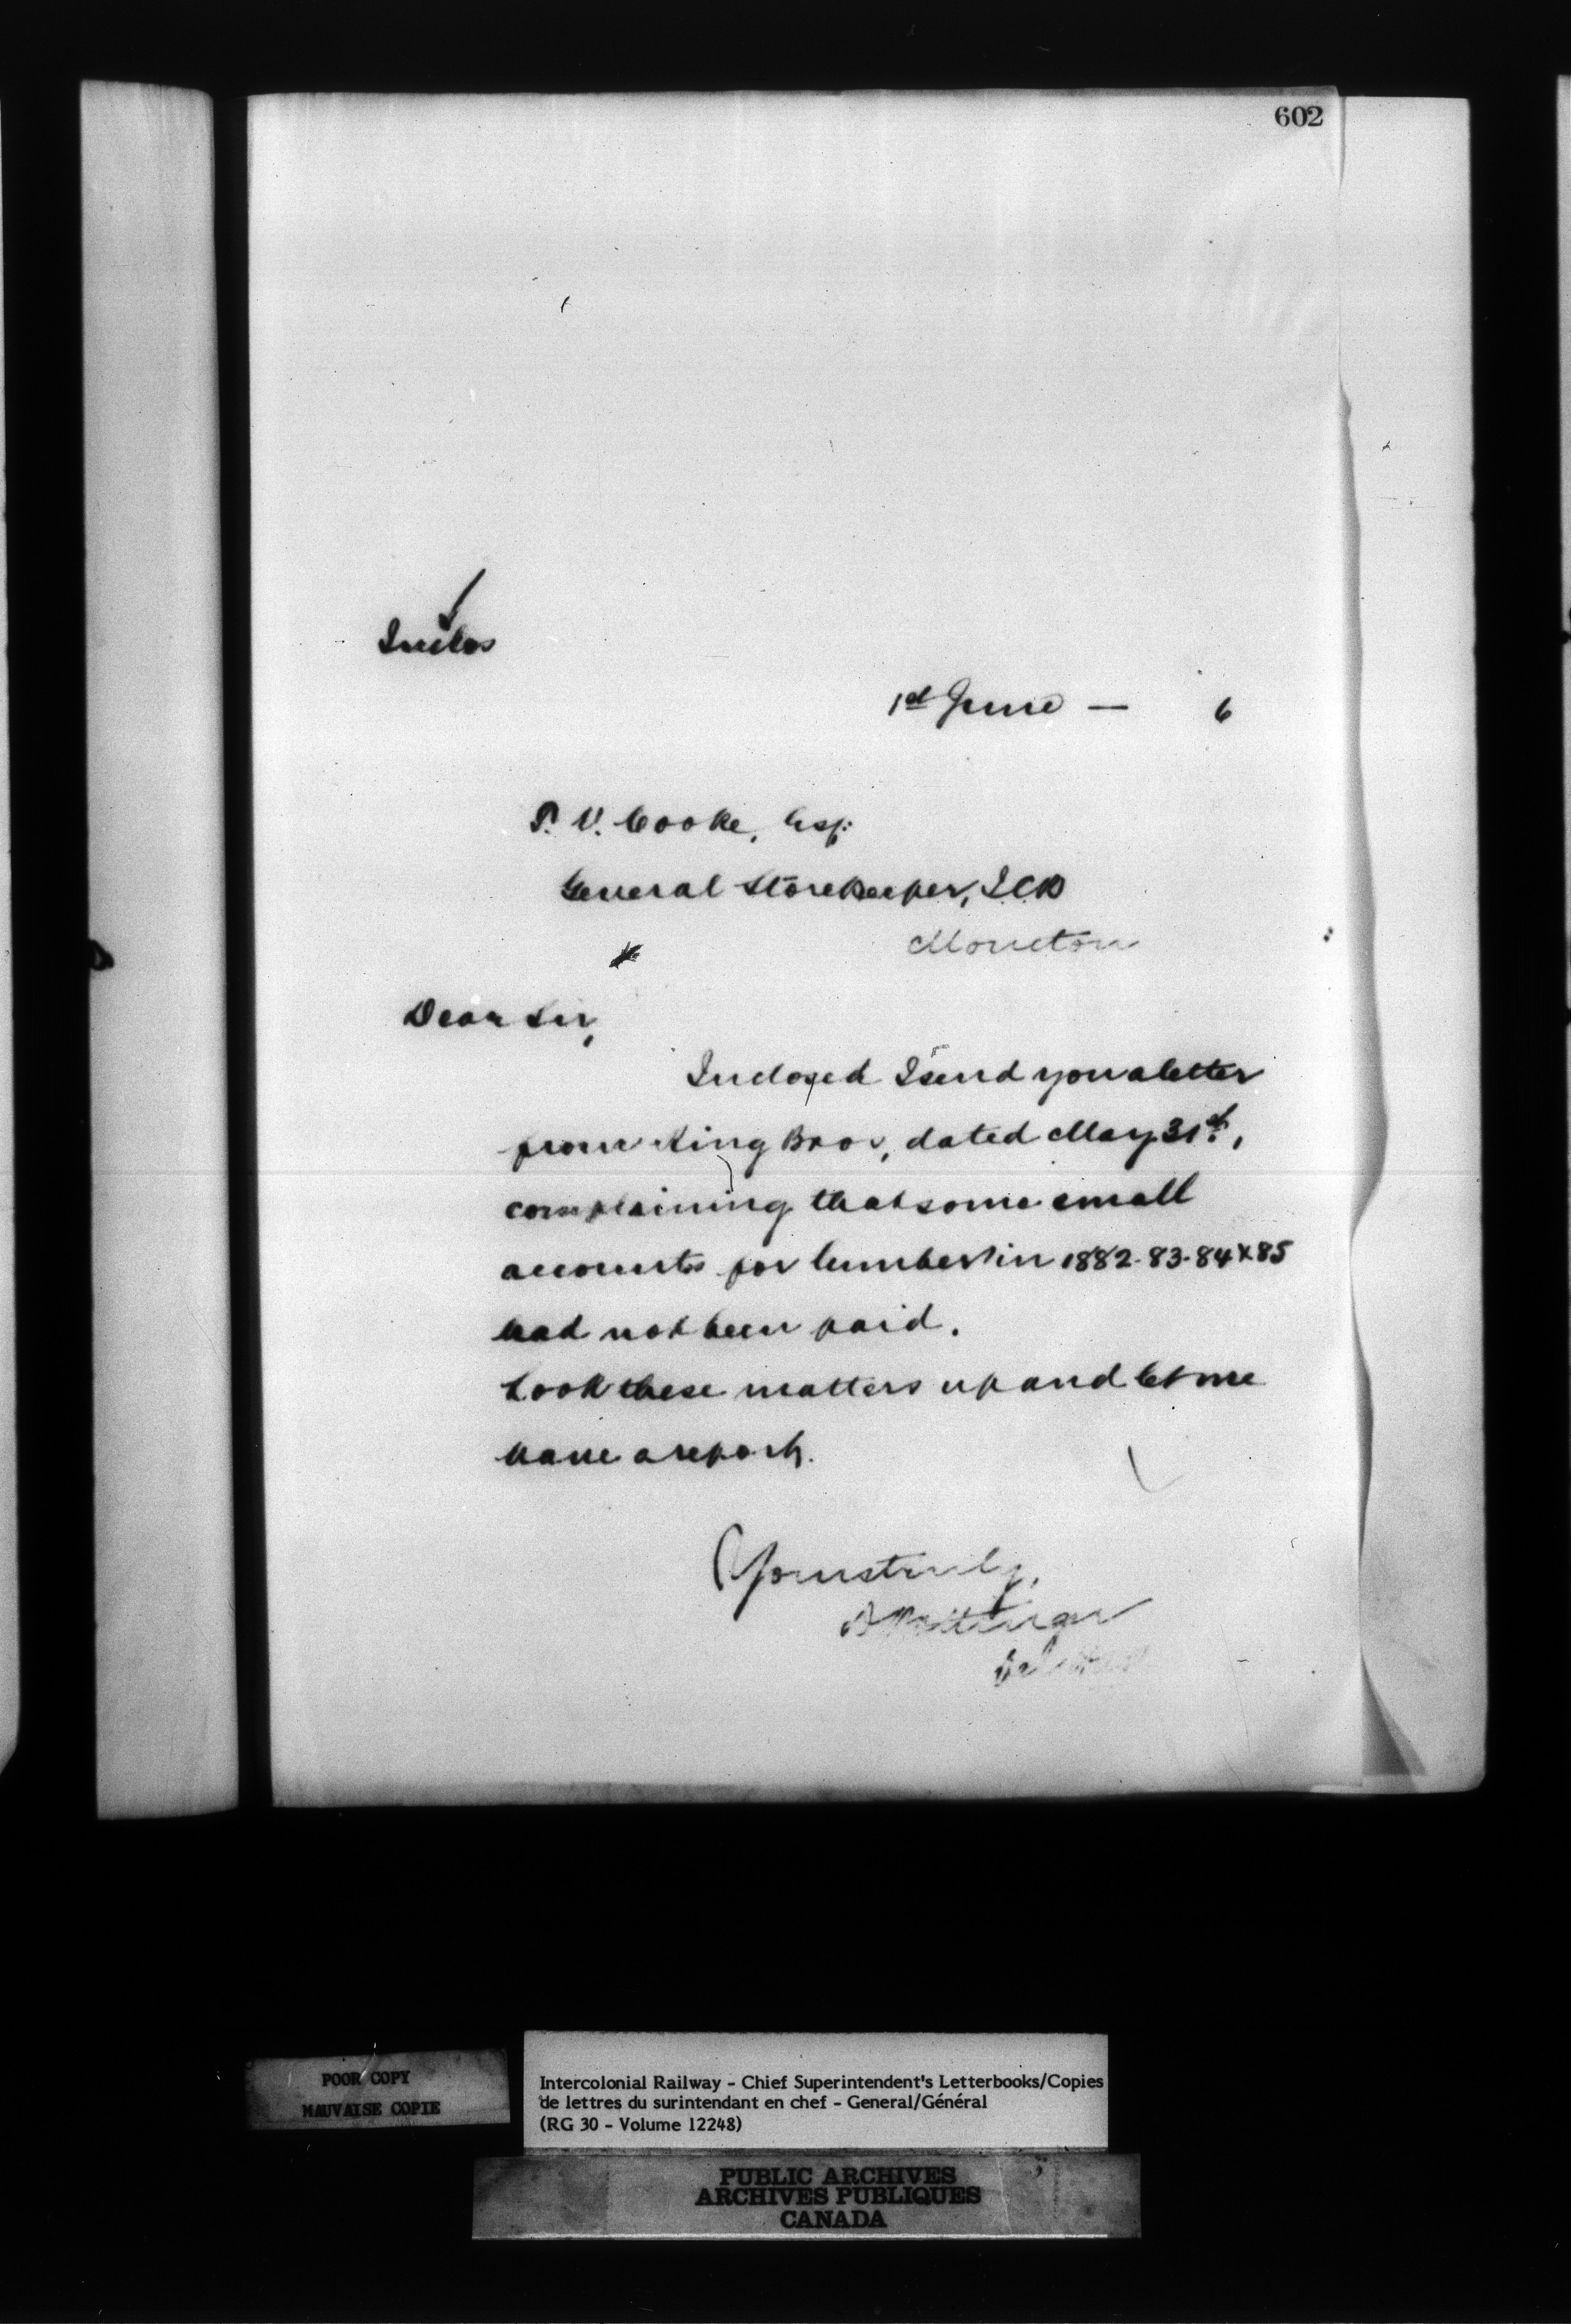 602
Inclos
1st June — 6
P. V. Cooke, Esq:
General Storekeeper, I.C.R
Moncton
Dear Sir,
Inclosed I send you a letter
from King Bros, dated May 31st,
complaining that some small
accounts for lumber in 1882-83-84 & 85
had not been paid.
Look these matters up and let me
have a report.
Yours truly,
D Pottinger
POOR COPY
MAUVAISE COPIE
Intercolonial Railway - Chief Superintendent's Letterbooks/Copies
de lettres du surintendant en chef - General/Général
(RG 30 - Volume 12248)
PUBLIC ARCHIVES
ARCHIVES PUBLIQUES
CANADA